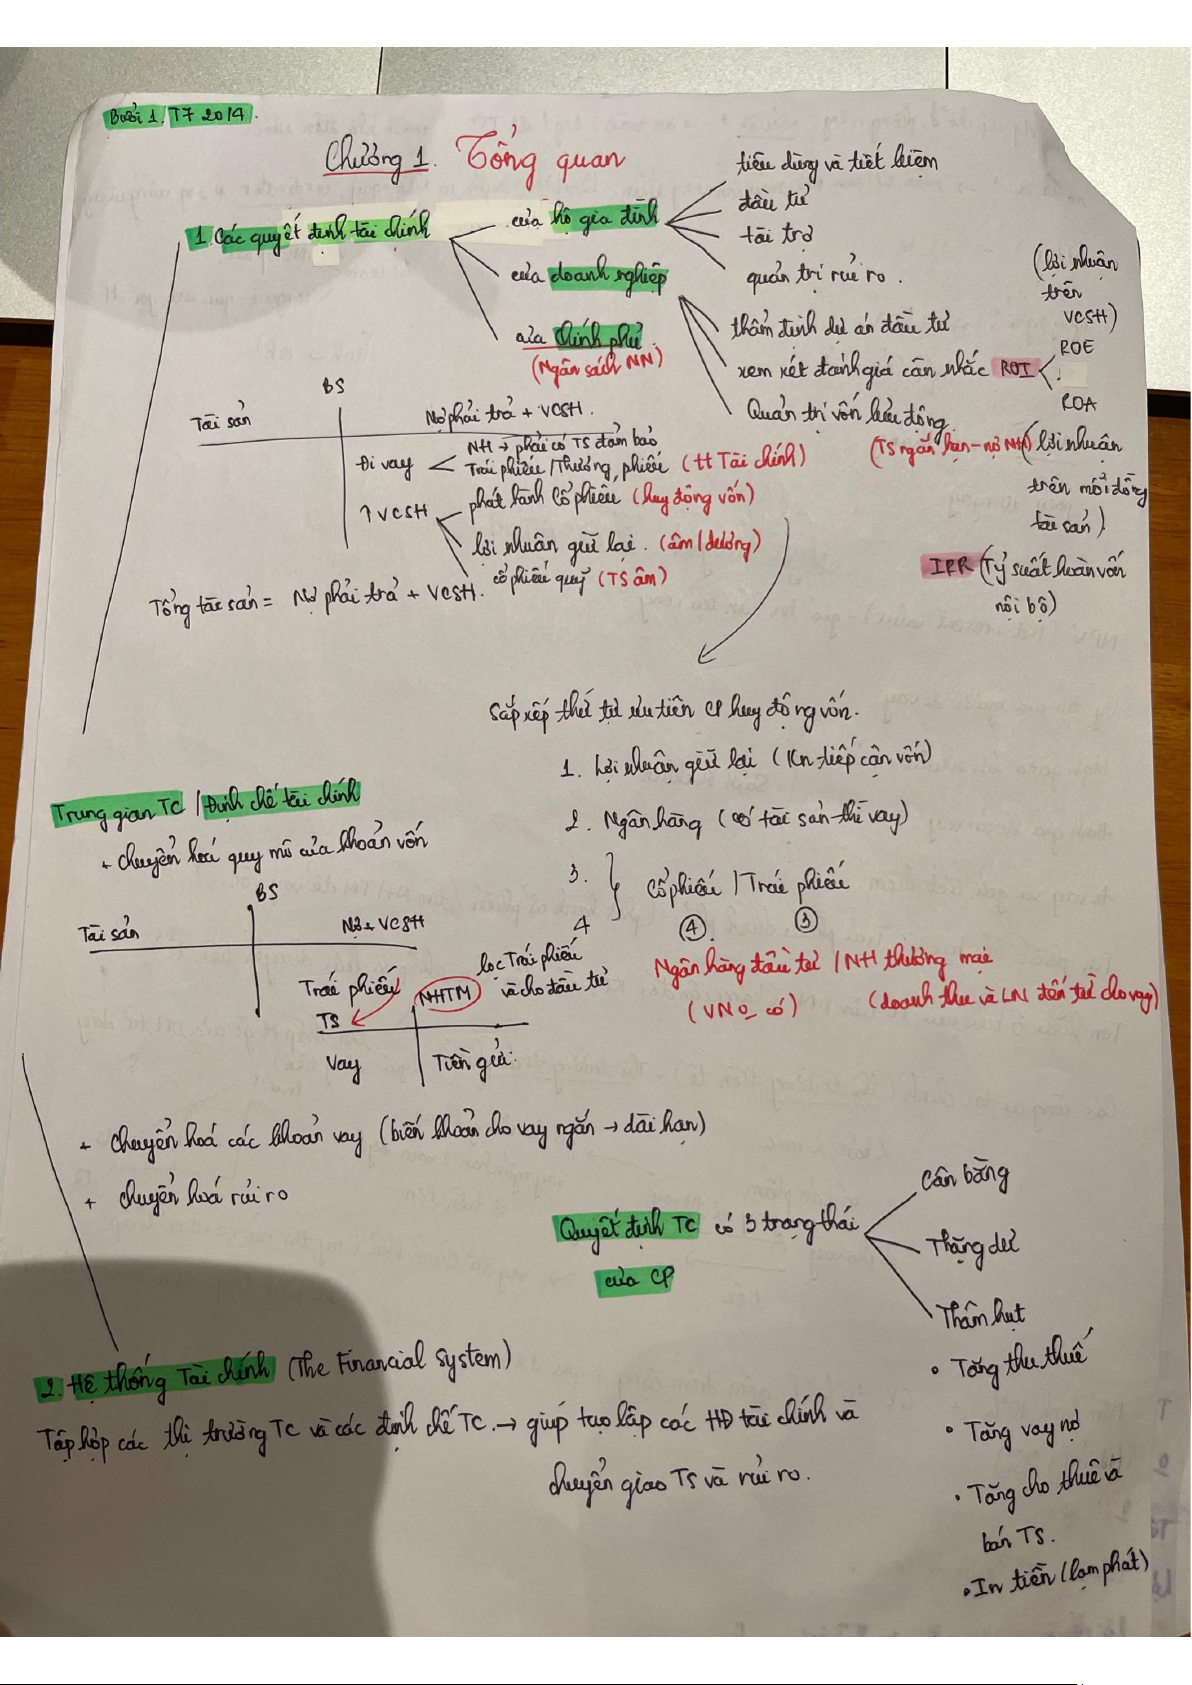 Buổi 1. T7 20/4.
Chương 1. Tổng quan
1. Các quyết định tài chính
của hộ gia đình
tiêu dùng và tiết kiệm
đầu tư
tài trợ
quản trị rủi ro.
của doanh nghiệp
thẩm định dự án đầu tư
xem xét đánh giá cân nhắc ROI
ROE
(lợi nhuận
trên
VCSH)
ROA
(lợi nhuận
trên mỗi đồng
tài sản)
Quản trị vốn lưu động.
(TS ngắn hạn - nợ NH)
IRR (Tỷ suất hoàn vốn
nội bộ)
của chính phủ.
(Ngân sách NN)
BS
Tài sản
Nợ phải trả + VCSH.
Đi vay
NH → phải có TS đảm bảo
Trái phiếu / Thương phiếu (tt Tài chính)
↑ VCSH
phát hành cổ phiếu (huy động vốn)
lợi nhuận giữ lại. (âm/dương)
cổ phiếu quỹ (TS âm)
Tổng tài sản = Nợ phải trả + VCSH.
Sắp xếp thứ tự ưu tiên CP huy động vốn.
1. Lợi nhuận giữ lại (Kn tiếp cận vốn)
2. Ngân hàng (có tài sản thì vay)
3.
4
Cổ phiếu / Trái phiếu
④. ③
Ngân hàng đầu tư / NH thương mại
(VN o có) (doanh thu và LN đến từ cho vay)
Trung gian TC / Định chế tài chính
+ chuyển hoá quy mô của khoản vốn
BS
Tài sản
Nợ + VCSH
Trái phiếu
NHTM
lọc Trái phiếu
và cho đầu tư
TS
Vay
Tiền gửi.
+ chuyển hoá các khoản vay (biến khoản cho vay ngắn → dài hạn)
+ chuyển hoá rủi ro
Quyết định TC có 3 trạng thái
của CP
Cân bằng
Thặng dư
Thâm hụt
• Tăng thu thuế
• Tăng vay nợ
• Tăng cho thuê và
bán TS.
• In tiền (lạm phát)
2. Hệ thống Tài chính (The Financial System)
Tập hợp các thị trường TC và các định chế TC. → giúp tạo lập các HĐ tài chính và
chuyển giao TS và rủi ro.